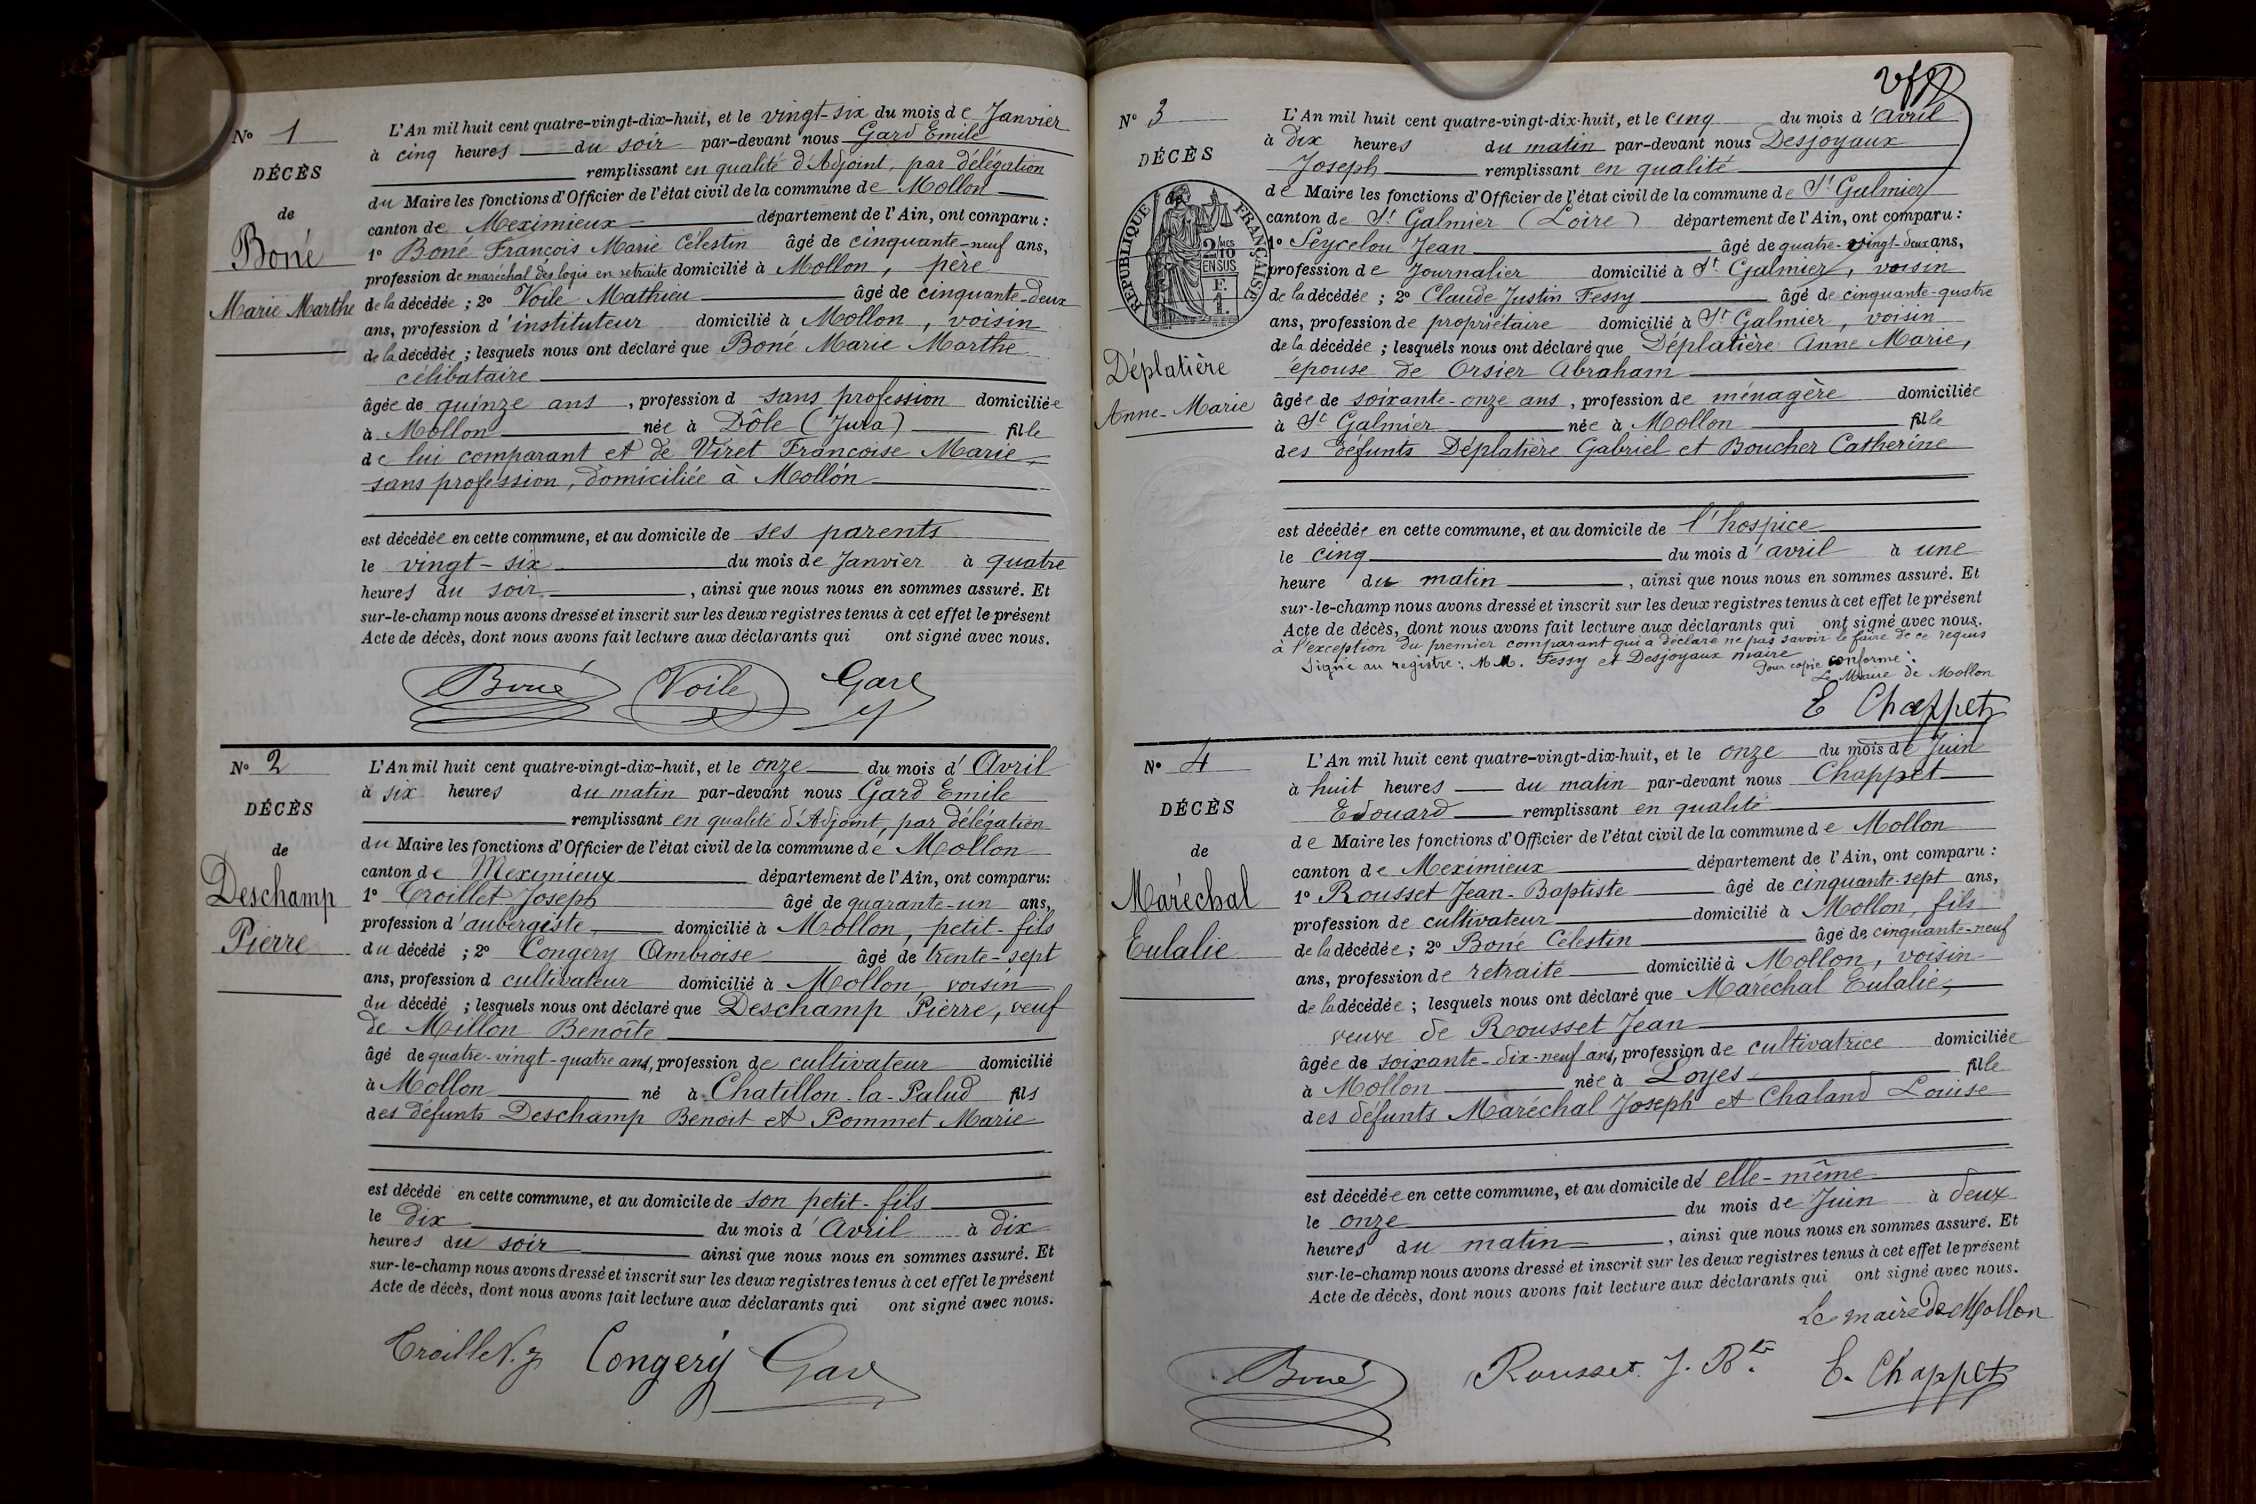 N° 1
DÉCÈS
de
Boné
Marie Marthe
L'An mil huit cent quatre-vingt-dix-huit, et le vingt-six du mois de Janvier
à cinq heures du soir par-devant nous Gard Emile
remplissant en qualité d'Adjoint, par délégation
du Maire les fonctions d'Officier de l'état civil de la commune de Mollon
canton de Meximieux département de l'Ain, ont comparu :
1° Boné François Marie Célestin âgé de cinquante-neuf ans,
profession de maréchal des logis en retraite domicilié à Mollon, père
de la décédée ; 2° Voile Mathieu âgé de cinquante-deux
ans, profession d'instituteur domicilié à Mollon, voisin
de la décédée ; lesquels nous ont déclaré que Boné Marie Marthe
célibataire
âgée de quinze ans, profession d sans profession domiciliée
à Mollon née à Dôle (Jura) fille
de lui comparant et de Viret Françoise Marie,
sans profession, domiciliée à Mollon
est décédée en cette commune, et au domicile de ses parents
le vingt-six du mois de Janvier à quatre
heures du soir, ainsi que nous nous en sommes assuré. Et
sur-le-champ nous avons dressé et inscrit sur les deux registres tenus à cet effet le présent
Acte de décès, dont nous avons fait lecture aux déclarants qui ont signé avec nous.
Boné Voile Gard
N° 2
DÉCÈS
de
Deschamp
Pierre
L'An mil huit cent quatre-vingt-dix-huit, et le onze du mois d'Avril
à six heures du matin par-devant nous Gard Emile
remplissant en qualité d'Adjoint, par délégation
du Maire les fonctions d'Officier de l'état civil de la commune de Mollon
canton de Meximieux département de l'Ain, ont comparu:
1° Croillet Joseph âgé de quarante-un ans,
profession d'aubergiste domicilié à Mollon, petit-fils
du décédé ; 2° Congery Ambroise âgé de trente-sept
ans, profession d cultivateur domicilié à Mollon, voisin
du décédé ; lesquels nous ont déclaré que Deschamp Pierre, veuf
de Millon Benoîte
âgé de quatre-vingt-quatre ans, profession de cultivateur domicilié
à Mollon né à Chatillon-la-Palud fils
des défunts Deschamp Benoit et Pommet Marie
est décédé en cette commune, et au domicile de son petit-fils
le dix du mois d'Avril à dix
heures du soir ainsi que nous nous en sommes assuré. Et
sur-le-champ nous avons dressé et inscrit sur les deux registres tenus à cet effet le présent
Acte de décès, dont nous avons fait lecture aux déclarants qui ont signé avec nous.
Croillet. J Congery Gard
N° 3
DÉCÈS
RÉPUBLIQUE FRANÇAISE
2/10 MES
EN SUS
F.
Déplatière
Anne-Marie
L'An mil huit cent quatre-vingt-dix-huit, et le cinq du mois d'Avril
à dix heures du matin par-devant nous Desjoyaux
Joseph remplissant en qualité
de Maire les fonctions d'Officier de l'état civil de la commune de St Galmier
canton de St Galmier (Loire) département de l'Ain, ont comparu :
1° Seycelou Jean âgé de quatre-vingt-deux ans,
profession de Journalier domicilié à St Galmier, voisin
de la décédée ; 2° Claude Justin Fessy âgé de cinquante-quatre
ans, profession de propriétaire domicilié à St Galmier, voisin
de la décédée ; lesquels nous ont déclaré que Déplatière Anne Marie,
épouse de Orsier Abraham
âgée de soixante-onze ans, profession de ménagère domiciliée
à St Galmier née à Mollon fille
des défunts Déplatière Gabriel et Boucher Catherine
est décédée en cette commune, et au domicile de l'hospice
le cinq du mois d'avril à une
heure du matin, ainsi que nous nous en sommes assuré. Et
sur-le-champ nous avons dressé et inscrit sur les deux registres tenus à cet effet le présent
Acte de décès, dont nous avons fait lecture aux déclarants qui ont signé avec nous.
à l'exception du premier comparant qui a déclaré ne pas savoir le faire de ce requis
Signé au registre : M.M. Fessy et Desjoyaux maire
Pour copie conforme :
Le Maire de Mollon
E Chappet
N° 4
DÉCÈS
de
Maréchal
Eulalie
L'An mil huit cent quatre-vingt-dix-huit, et le onze du mois de Juin
à huit heures du matin par-devant nous Chappet
Edouard remplissant en qualité
de Maire les fonctions d'Officier de l'état civil de la commune de Mollon
canton de Meximieux département de l'Ain, ont comparu :
1° Rousset Jean-Baptiste âgé de cinquante-sept ans,
profession de cultivateur domicilié à Mollon, fils
de la décédée ; 2° Boné Célestin âgé de cinquante-neuf
ans, profession de retraité domicilié à Mollon, voisin
de la décédée ; lesquels nous ont déclaré que Maréchal Eulalie,
veuve de Rousset Jean
âgée de soixante-dix-neuf ans, profession de cultivatrice domiciliée
à Mollon née à Loyes fille
des défunts Maréchal Joseph et Chaland Louise
est décédée en cette commune, et au domicile de elle-même
le onze du mois de Juin à deux
heures du matin, ainsi que nous nous en sommes assuré. Et
sur-le-champ nous avons dressé et inscrit sur les deux registres tenus à cet effet le présent
Acte de décès, dont nous avons fait lecture aux déclarants qui ont signé avec nous.
Le maire de Mollon
Boné Rousset. J. Bte. E. Chappet